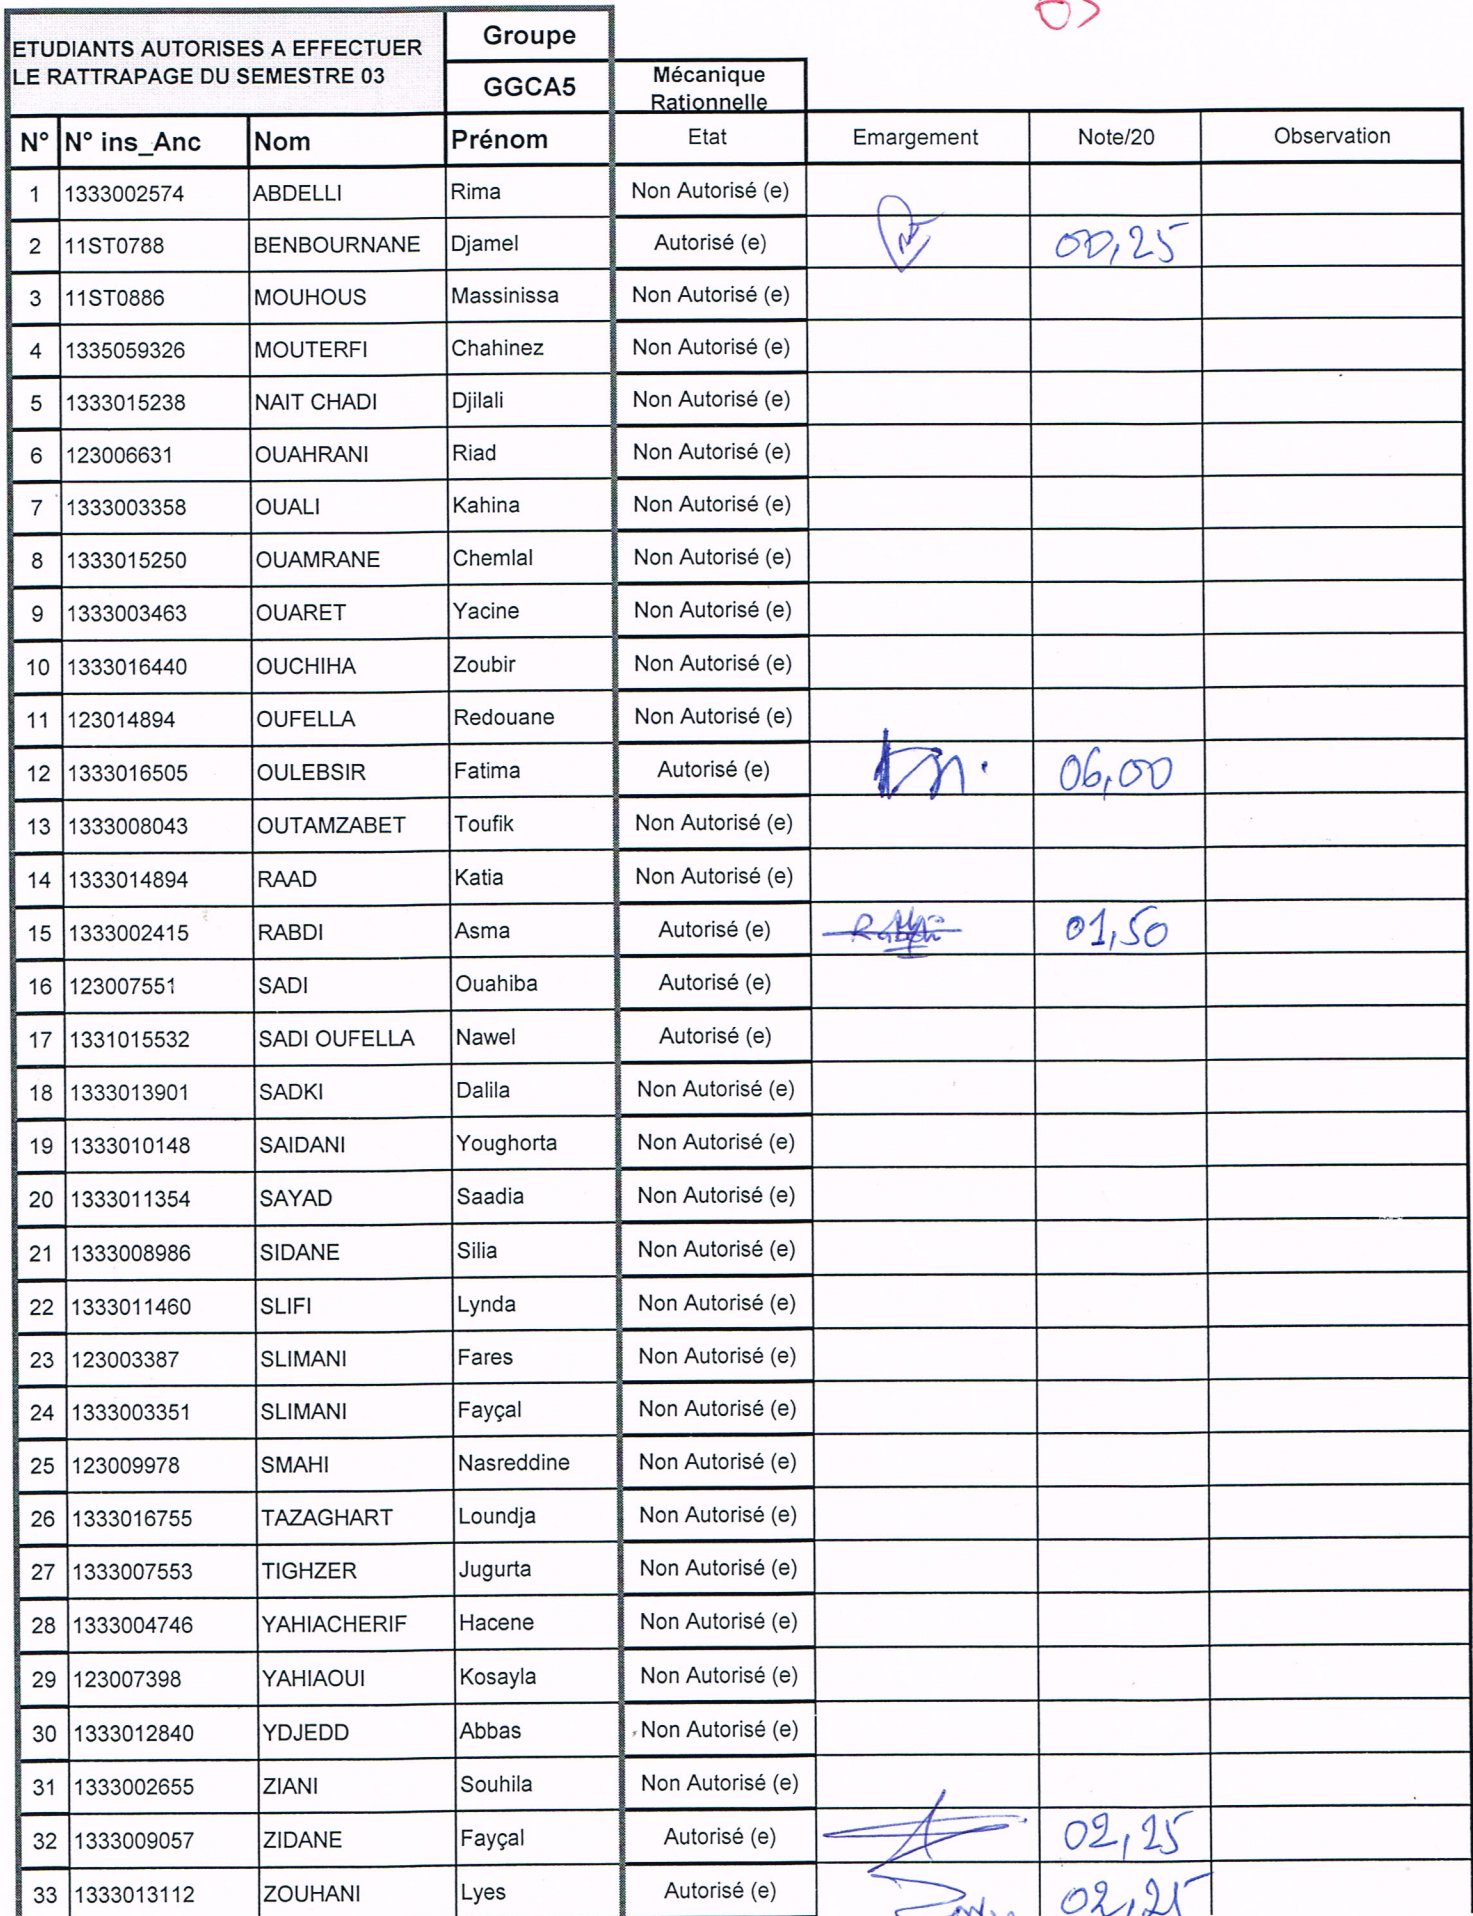 ETUDIANTS AUTORISES A EFFECTUER
LE RATTRAPAGE DU SEMESTRE 03
Groupe
GGCA5
Mécanique
Rationnelle
N° N° ins_Anc Nom Prénom Etat Emargement Note/20 Observation
1 1333002574 ABDELLI Rima Non Autorisé (e)
2 11ST0788 BENBOURNANE Djamel Autorisé (e) 00,25
3 11ST0886 MOUHOUS Massinissa Non Autorisé (e)
4 1335059326 MOUTERFI Chahinez Non Autorisé (e)
5 1333015238 NAIT CHADI Djilali Non Autorisé (e)
6 123006631 OUAHRANI Riad Non Autorisé (e)
7 1333003358 OUALI Kahina Non Autorisé (e)
8 1333015250 OUAMRANE Chemlal Non Autorisé (e)
9 1333003463 OUARET Yacine Non Autorisé (e)
10 1333016440 OUCHIHA Zoubir Non Autorisé (e)
11 123014894 OUFELLA Redouane Non Autorisé (e)
12 1333016505 OULEBSIR Fatima Autorisé (e) 06,00
13 1333008043 OUTAMZABET Toufik Non Autorisé (e)
14 1333014894 RAAD Katia Non Autorisé (e)
15 1333002415 RABDI Asma Autorisé (e) 01,50
16 123007551 SADI Ouahiba Autorisé (e)
17 1331015532 SADI OUFELLA Nawel Autorisé (e)
18 1333013901 SADKI Dalila Non Autorisé (e)
19 1333010148 SAIDANI Youghorta Non Autorisé (e)
20 1333011354 SAYAD Saadia Non Autorisé (e)
21 1333008986 SIDANE Silia Non Autorisé (e)
22 1333011460 SLIFI Lynda Non Autorisé (e)
23 123003387 SLIMANI Fares Non Autorisé (e)
24 1333003351 SLIMANI Fayçal Non Autorisé (e)
25 123009978 SMAHI Nasreddine Non Autorisé (e)
26 1333016755 TAZAGHART Loundja Non Autorisé (e)
27 1333007553 TIGHZER Jugurta Non Autorisé (e)
28 1333004746 YAHIACHERIF Hacene Non Autorisé (e)
29 123007398 YAHIAOUI Kosayla Non Autorisé (e)
30 1333012840 YDJEDD Abbas Non Autorisé (e)
31 1333002655 ZIANI Souhila Non Autorisé (e)
32 1333009057 ZIDANE Fayçal Autorisé (e) 02,25
33 1333013112 ZOUHANI Lyes Autorisé (e) 02,25